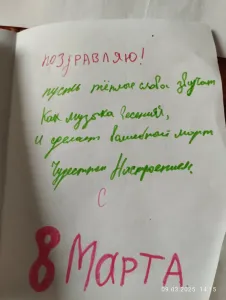 ПОЗДРАВЛЯЮ!
пусть тёплые слова звучат
Как музыка весной,
и сделает волшебной март
Чудесным Настроением.
С
8 МАРТА
09.03.2025 14:15